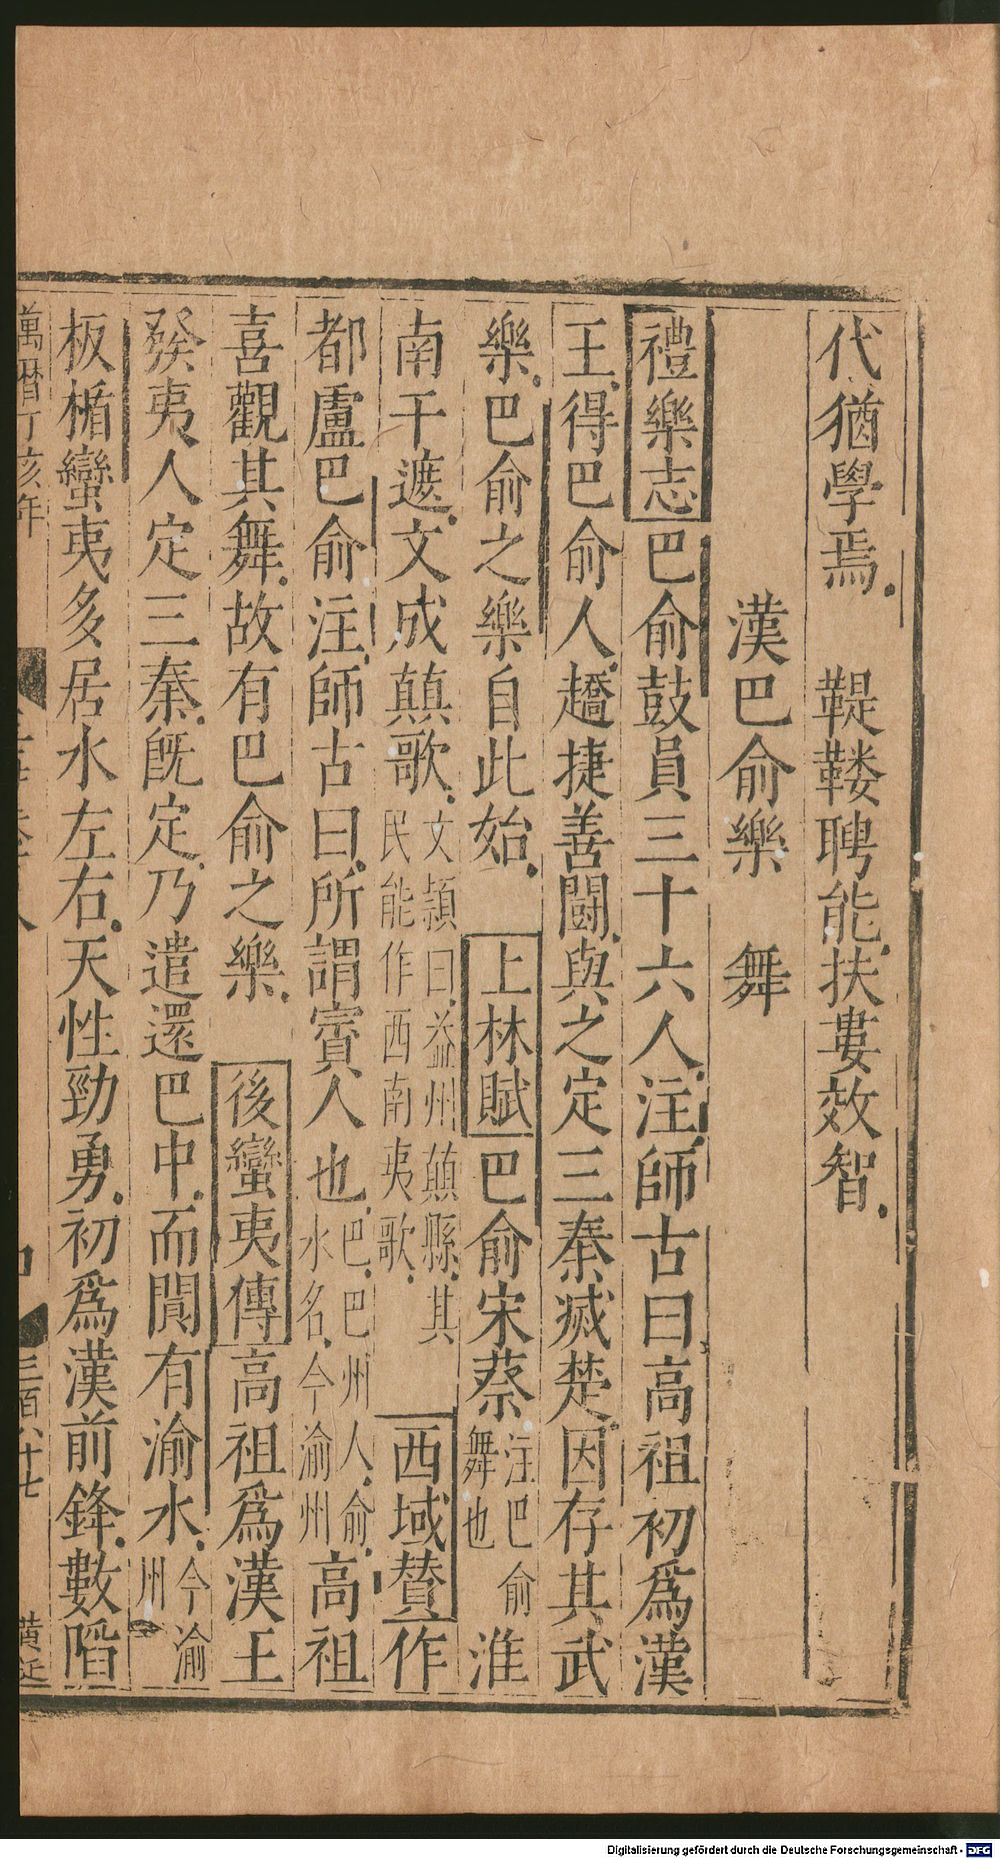 代猶學焉　鞮鞻聘能扶婁效智
漢巴俞樂　舞
禮樂志巴俞鼓員三十六人注師古曰高祖初爲漢
王得巴俞人趫捷善鬪與之定三秦滅楚因存其武
樂巴俞之樂自此始　上林賦巴俞宋蔡注巴俞舞也淮
南干遮文成顛歌文頴曰益州顛縣其民能作西南夷歌　西域賛作
都盧巴俞注師古曰所謂賓人也巴巴州人俞水名今渝州高祖
喜觀其舞故有巴俞之樂　後蠻夷傳高祖爲漢王
發夷人定三秦旣定乃遣還巴中而閬有渝水今渝州
板楯蠻夷多居水左右天性勁勇初爲漢前鋒數陷
萬曆丁亥年　三百八十七　黄
Digitalisierung gefördert durch die Deutsche Forschungsgemeinschaft - DFG